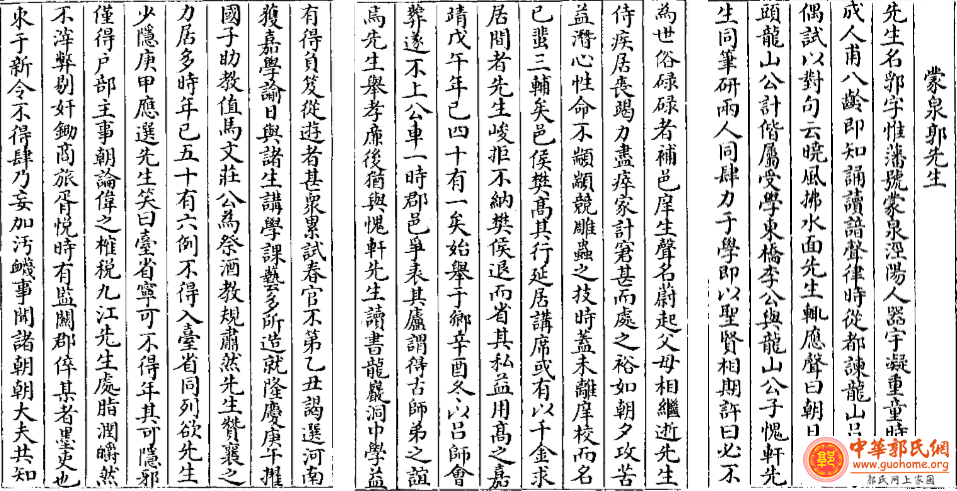 蒙泉郭先生
先生名郛字惟藩號蒙泉涇陽人器宇凝重童時
成人甫八齡即知誦讀諳聲律時從都諫龍山呂
偶試以對句云曉風拂水面先生輒應聲曰朝日
頭龍山公計偕屬受學東橋李公與龍山公子愧軒先
生同筆研兩人同肆力于學即以聖賢相期許曰必不
為世俗碌碌者補邑庠生聲名蔚起父母相繼逝先生
侍疾居喪竭力盡瘁家計窘甚而處之裕如朝夕攻苦
益潛心性命不顓顓競雕蟲之技時蓋未離庠校而名
已蜚三輔矣邑侯樊高其行延居講席或有以千金求
居間者先生峻拒不納樊侯退而省其私益用高之嘉
靖戊午年已四十有一矣始舉于鄉辛酉冬以呂師會
葬遂不上公車一時郡邑爭表其廬謂得古師弟之誼
焉先生舉孝廉後猶與愧軒先生讀書龍巖洞中學益
有得負笈從遊者甚衆累試春官不第乙丑謁選河南
獲嘉學諭日與諸生講學課藝多所造就隆慶庚午擢
國子助教值馬文莊公為祭酒教規肅然先生贊襄之
力居多時年已五十有六例不得入臺省同列欲先生
少隱庚甲應選先生笑曰臺省寧可不得年其可隱邪
僅得戶部主事朝論偉之榷稅九江先生處脂潤皭然
不滓弊剔奸鋤商旅胥悅時有監闗郡倅某者墨吏也
束于新令不得肆乃妄加汚衊事聞諸朝朝大夫共知
中華郭氏網
www.guohome.org
郭氏网上家园